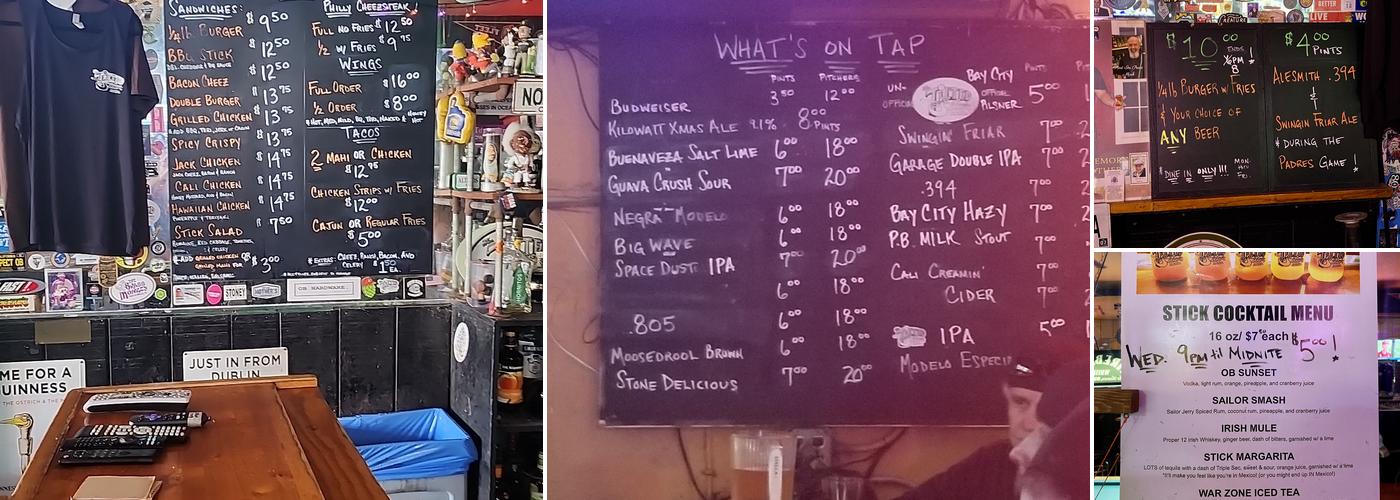 SANDWICHES:
1/4 lb BURGER $9.50
BBQ STICK $12.50
BACON CHEEZ $12.50
DOUBLE BURGER $13.75
GRILLED CHICKEN $13.75
SPICY CRISPY $13.75
JACK CHICKEN $14.75
CALI CHICKEN $14.75
HAWAIIAN CHICKEN $14.75
STICK SALAD $7.50
ADD GRILLED CHICKEN OR $3.00
PHILLY CHEEZSTEAK!
FULL NO FRIES $12.50
1/2 W/ FRIES $9.75
WINGS
FULL ORDER $16.00
1/2 ORDER $8.00
TACOS
2 MAHI OR CHICKEN
$12.95
CHICKEN STRIPS W/ FRIES
$12.00
CAJUN OR REGULAR FRIES
$5.00
* EXTRAS: CHEEZ, RANCH, BACON, AND
CELERY $1.50 EA.
STONEY
OB HARDWARE
ME FOR A
GUINNESS
JUST IN FROM
DUBLIN
NO
WHAT'S ON TAP
PINTS PITCHERS
BUDWEISER 3.50 12.00
KILOWATT XMAS ALE 9.1% 8.00 PINTS
BUENAVEZA SALT LIME 6.00 18.00
GUAVA CRUSH SOUR 7.00 20.00
NEGRA MODELO 6.00 18.00
BIG WAVE 6.00 18.00
SPACE DUST IPA 7.00 20.00
6.00 18.00
.805 6.00 18.00
MOOSEDROOL BROWN 6.00 18.00
STONE DELICIOUS 7.00 20.00
PINTS
UN-OFFICIAL BAY CITY OFFICIAL PILSNER 5.00
SWINGIN' FRIAR 7.00
GARAGE DOUBLE IPA 7.00
.394
BAY CITY HAZY 7.00
P.B. MILK STOUT 7.00
CALI CREAMIN' 7.00
CIDER 7.00
IPA 5.00
MODELO ESPECI
$10.00 ENDS @ 6PM!
1/4 lb BURGER W/ FRIES
& YOUR CHOICE OF
ANY BEER
* DINE IN ONLY!!! MON. THRU FRI.
$4.00 PINTS
ALESMITH .394
&
SWINGIN FRIAR ALE
* DURING THE
PADRES GAME!
STICK COCKTAIL MENU
16 oz/ $7.50 each $5.00!
WED. 9PM til MIDNITE
OB SUNSET
Vodka, light rum, orange, pineapple, and cranberry juice
SAILOR SMASH
Sailor Jerry Spiced Rum, coconut rum, pineapple, and cranberry juice
IRISH MULE
Proper 12 Irish Whiskey, ginger beer, dash of bitters, garnished w/ a lime
STICK MARGARITA
LOTS of tequila with a dash of Triple Sec, sweet & sour, orange juice, garnished w/ a lime
*It'll make you feel like you're in Mexico! (or you might end up IN Mexico!)
WAR ZONE ICED TEA